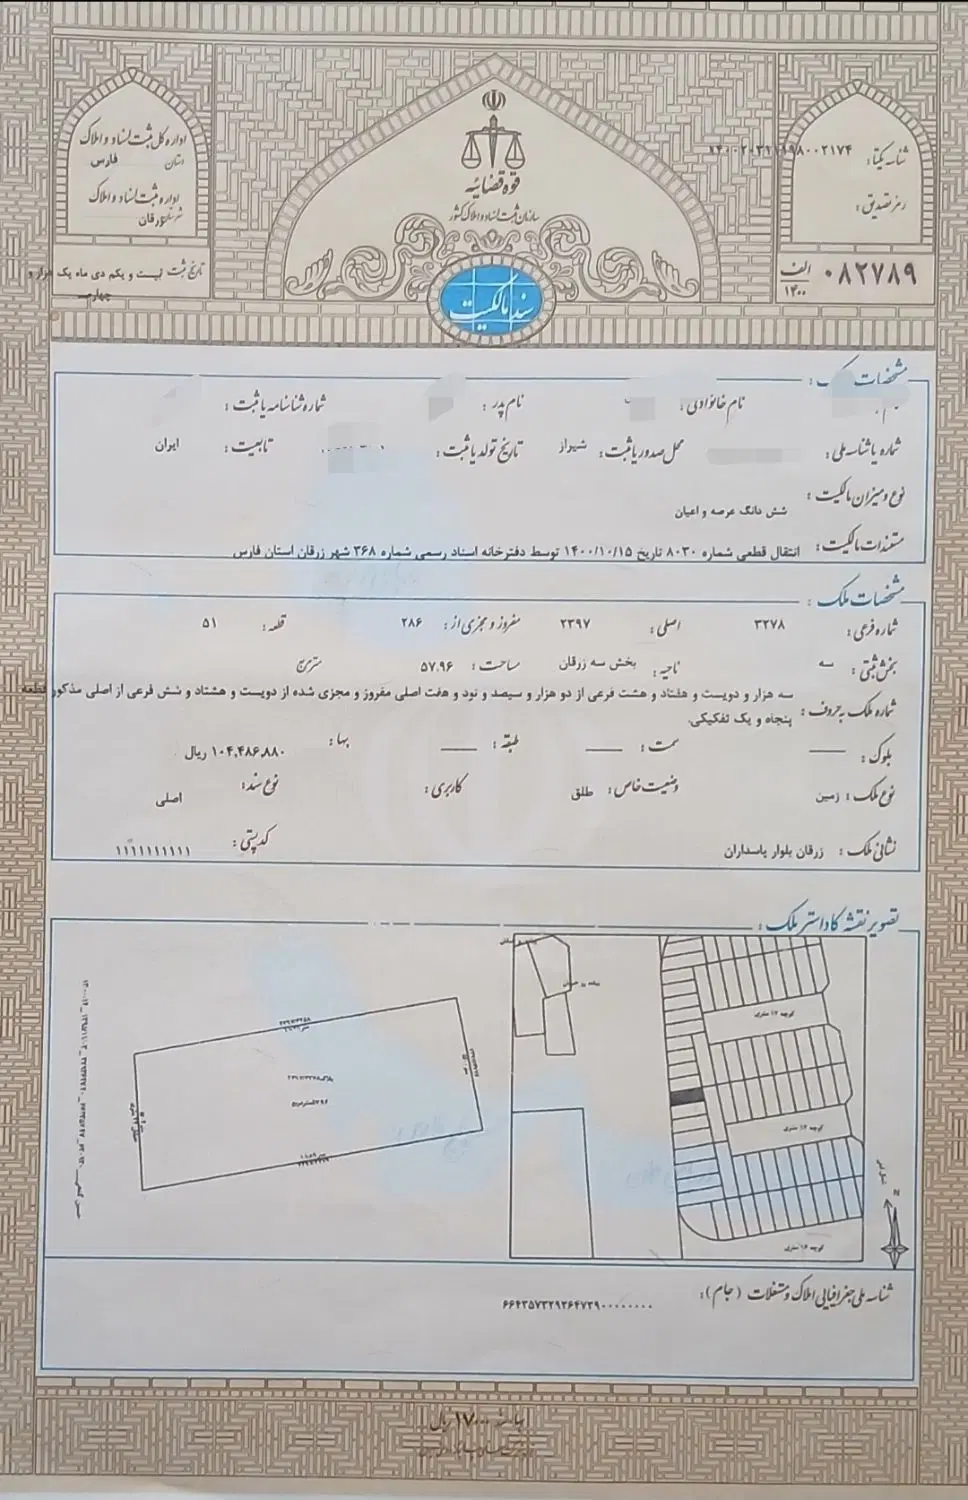 اداره کل ثبت اسناد و املاک
استان فارس
اداره ثبت اسناد و املاک
شهرستان زرقان
تاریخ ثبت بیست و یکم دی ماه یک هزار و
چهارصد
قوه قضائیه
سازمان ثبت اسناد و املاک کشور
سند مالکیت
شناسه یکتا:
رمز تصدیق:
۰۸۲۷۸۹ الف
۱۴۰۰
مشخصات
نام خانوادگی: نام پدر: شماره شناسنامه یا ثبت:
شماره یا شناسه ملی: محل صدور یا ثبت: شیراز تاریخ تولد یا ثبت: تابعیت: ایران
نوع و میزان مالکیت: شش دانگ عرصه و اعیان
مستندات مالکیت: انتقال قطعی شماره ۸۰۳۰ تاریخ ۱۴۰۰/۱۰/۱۵ توسط دفترخانه اسناد رسمی شماره ۳۶۸ شهر زرقان استان فارس
مشخصات ملک:
شماره فرعی: ۳۲۷۸ اصلی: ۲۳۹۷ مفروز و مجزی از: ۲۸۶ قطعه: ۵۱
بخش ثبتی: سه ناحیه: بخش سه زرقان مساحت: ۵۷.۹۶ متر مربع
شماره ملک به حروف: سه هزار و دویست و هفتاد و هشت فرعی از دو هزار و سیصد و نود و هفت اصلی مفروز و مجزی شده از دویست و هشتاد و شش فرعی از اصلی مذکور قطعه
پنجاه و یک تفکیکی.
بلوک: سمت: طبقه: بها: ۱۰۴,۴۸۶,۸۸۰ ریال
نوع ملک: زمین وضعیت خاص: طلق کاربری: نوع سند: اصلی
نشانی ملک: زرقان بلوار پاسداران کد پستی: ۱۱۱۱۱۱۱۱۱۱
تصویر نقشه کاداستر ملک:
کوچه ۱۲ متری
کوچه ۱۲ متری
کوچه ۱۲ متری
N
شناسه ملی جغرافیایی املاک و مستغلات (جام):
بهاء ۱۷۰۰۰ ریال